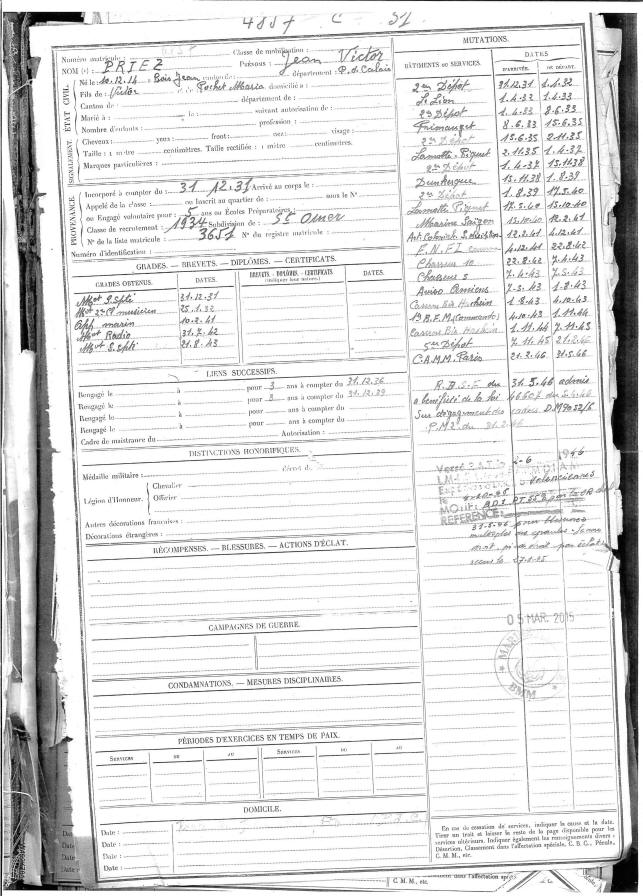 4857 C 51
Numéro matricule : Classe de mobilisation :
NOM (1) : PRIEZ Prénoms : Jean Victor
ÉTAT CIVIL
Né le : 10.12.14 Bois Jean canton de département : P. de Calais
Fils de : Victor et de Pochet Maria domicilié à :
Canton de : département de :
Marié à : le : suivant autorisation de :
Nombre d'enfants : profession :
SIGNALEMENT
Cheveux : yeux : front : nez : visage :
Taille : 1 mètre centimètres. Taille rectifiée : 1 mètre centimètres.
Marques particulières :
PROVENANCE
Incorporé à compter du : 31 12.31 Arrivé au corps le :
Appelé de la classe : ou Inscrit au quartier de : sous le N° :
ou Engagé volontaire pour : 5 ans ou Écoles Préparatoires :
Classe de recrutement : 1934 Subdivision de : St Omer
N° de la liste matricule : 3657 N° du registre matricule :
Numéro d'identification :
GRADES. — BREVETS. — DIPLÔMES. — CERTIFICATS.
GRADES OBTENUS. DATES. BREVETS. - DIPLÔMES. - CERTIFICATS DATES.
(Indiquer leur nature.)
Mot S.Spté 31.12.31
Mot 2e Cl musicien 25.1.32
App marin 10.2.41
Mot Radio 31.7.42
Mot S.Spté 21.8.43
LIENS SUCCESSIFS.
Rengagé le à pour 3 ans à compter du 31.12.36
Rengagé le à pour 3 ans à compter du 31.12.39
Rengagé le à pour ans à compter du
Rengagé le à pour ans à compter du
Cadre de maistrance du Autorisation :
DISTINCTIONS HONORIFIQUES.
Médaille militaire : décret du
Légion d'Honneur.
Chevalier
Officier
Autres décorations françaises :
Décorations étrangères :
RÉCOMPENSES. — BLESSURES. — ACTIONS D'ÉCLAT.
CAMPAGNES DE GUERRE.
CONDAMNATIONS. — MESURES DISCIPLINAIRES.
PÉRIODES D'EXERCICES EN TEMPS DE PAIX.
SERVICES DU AU SERVICES DU AU
DOMICILE.
Date :
Date :
Date :
Date :
MUTATIONS.
BÂTIMENTS OU SERVICES. DATES
D'ARRIVÉE. DE DÉPART.
2me Dépôt 31.12.31 1.4.32
Le Lion 1.4.32 1.4.33
2e Dépôt 1.4.33 8.6.33
Primauguet 8.6.33 15.6.35
2e Dépôt 15.6.35 2.11.35
Lamotte-Piquet 2.11.35 1.4.37
2e Dépôt 1.4.37 15.11.38
Dunkerque 15.11.38 1.8.39
2e Dépôt 1.8.39 17.5.40
Lamotte Piquet 17.5.40 15.10.40
Marine Saigon 15.10.40 12.2.41
12.2.41 4.12.41
F.N.F.L 4.12.41 22.8.42
Chasseur 10 22.8.42 7.4.43
Chasseur 5 7.4.43 7.5.43
Aviso Amiens 7.5.43 1.8.43
Caserne Bir Hacheim 1.8.43 4.10.43
1er B.F.M. (Commando) 4.10.43 1.11.44
Caserne Bir Hacheim 1.11.44 7.11.45
5me Dépôt 7.11.45 21.2.46
C.A.M.M. Paris 21.2.46 31.5.46
R.D.S.F. du 31.5.46 admis
a bénéficié de la loi 46607 du 5.4.46
sur dégagement des cadres D.M 9032/6
P.M2. du
1946
Valenciennes
MOTIF
REFERENCE
31.5.46 pour blessures
multiples aux épaules
par éclats
05 MAR. 2015
BMM
En cas de cessation de services, indiquer la cause et la date.
Tirer un trait et laisser la reste de la page disponible pour les
services ultérieurs. Indiquer également les renseignements divers :
Désertion, Classement dans l'affectation spéciale, C. B. C., Pécule,
C. M. M., etc.
dans l'affectation spéc
C. M. M., etc.